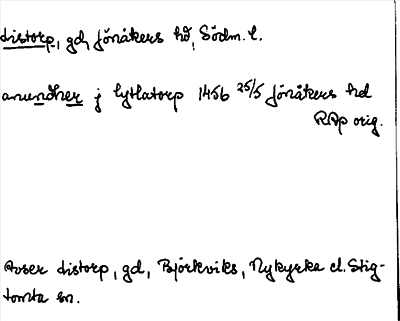 distorp, gd, Jönåkers hd, Södm. l.
anundher j lytlatorp 1456 25/5 Jönåkers hd
RAp orig.
Avser distorp, gd, Björkviks, Nykyrka el. Stig-
tomta sn.